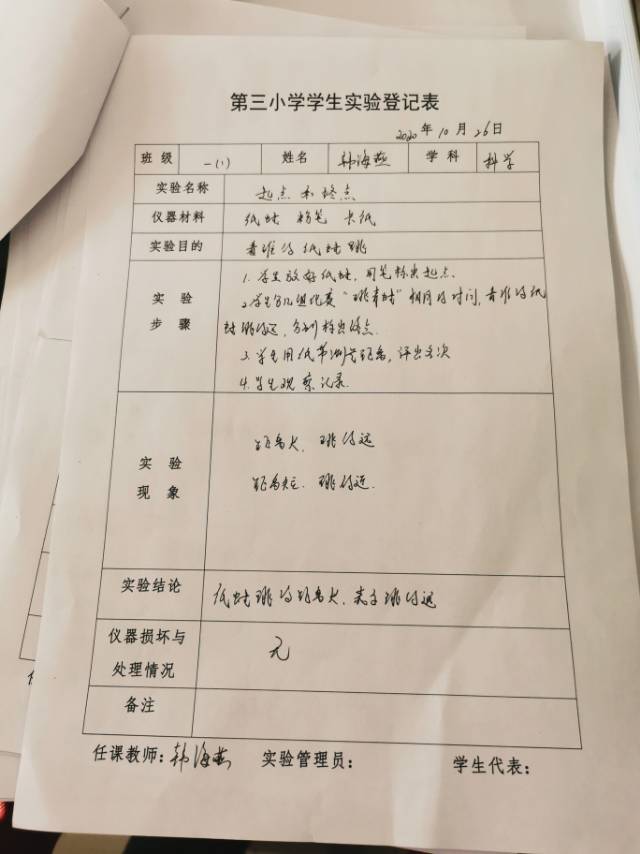 第三小学学生实验登记表
2020 年 10 月 26 日
班级 一(1) 姓名 韩海燕 学科 科学
实验名称 起点和终点
仪器材料 纸蛙 粉笔 长纸
实验目的 看谁的纸蛙跳
实验步骤
1. 学生放好纸蛙, 用笔标出起点.
2. 学生分组比赛“跳青蛙”相同的时间, 看谁的纸
蛙跳得远, 分别标出终点.
3. 学生用纸带测量距离, 评出名次
4. 学生观察记录.
实验现象
距离大, 跳得远
距离短. 跳得近.
实验结论 纸蛙跳的距离大, 表示跳得远
仪器损坏与
处理情况 无
备注
任课教师: 韩海燕 实验管理员: 学生代表: